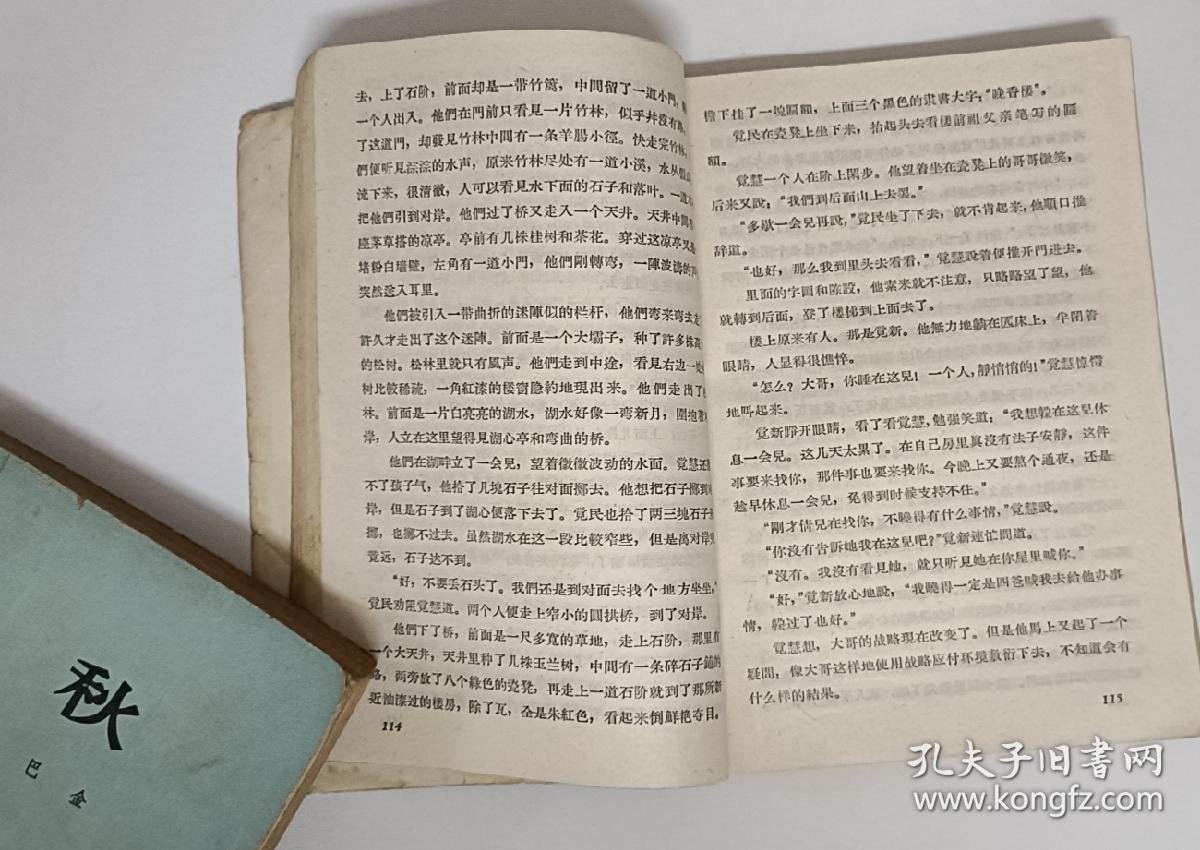 去，上了石阶，前面却是一带竹篱，中間留了一道小門，
一个人出入。他們在門前只看見一片竹林，似乎幷沒有
了这道門，却發見竹林中間有一条羊腸小徑。快走完竹林，
們便听見淙淙的水声，原来竹林尽处有一道小溪，水从
流下来，很清徹，人可以看見水下面的石子和落叶。一道
把他們引到对岸。他們过了桥又走入一个天井。天井中間
座茅草搭的凉亭。亭前有几株桂树和茶花。穿过这凉亭又是
堵粉白墙壁，左角有一道小門，他們剛轉弯，一陣波涛的声
突然送入耳里。
他們被引入一带曲折的迷陣似的栏杆，他們弯来弯去走
許久才走出了这个迷陣。前面是一个大壩子，种了許多株
的松树。松林里就只有風声。他們走到中途，看見右边一
树比較稀疏，一角紅漆的楼窗隐約地現出来。他們走出了
林。前面是一片白亮亮的湖水，湖水好像一弯新月，圍抱着
岸，人立在这里望得見湖心亭和弯曲的桥。
他們在湖畔立了一会兒，望着微微波动的水面。覚慧还
不了孩子气，他拾了几塊石子往对面擲去。他想把石子擲到
岸，但是石子到了湖心便落下去了。覚民也拾了两三塊石子
擲，也擲不过去。虽然湖水在这一段比較窄些，但是离对岸
竟远，石子达不到。
“好，不要丢石头了。我們还是到对面去找个地方坐坐，”
覚民劝阻覚慧道。两个人便走上窄小的圓拱桥，到了对岸。
他們下了桥，前面是一尺多寬的草地，走上石阶，那里有
一个大天井，天井里种了几株玉兰树，中間有一条碎石子鋪的
路，两旁放了八个綠色的瓷凳，再走上一道石阶就到了那所新
近油漆过的楼房，除了瓦，全是朱紅色，看起来倒鮮艳夺目。
114
檐下挂了一塊匾額，上面三个黑色的隶書大字：“晚香楼”。
覚民在瓷凳上坐下来，抬起头去看楼前祖父亲笔写的匾
額。
覚慧一个人在阶上閑步。他望着坐在瓷凳上的哥哥微笑，
后来又說：“我們到后面山上去罢。”
“多歇一会兒再說，”覚民坐了下去，就不肯起来，他順口推
辞道。
“也好，那么我到里头去看看，”覚慧說着便推开門进去。
里面的字画和陈設，他素来就不注意，只略略望了望，他
就轉到后面，登了楼梯到上面去了。
楼上原来有人。那是覚新。他無力地躺在匠床上，半閉着
眼睛，人显得很憔悴。
“怎么？大哥，你睡在这兒！一个人，靜悄悄的！”覚慧惊愕
地叫起来。
覚新睜开眼睛，看了看覚慧，勉强笑道：“我想躲在这兒休
息一会兒。这几天太累了。在自己房里眞沒有法子安靜，这件
事要来找你，那件事也要来找你。今晚上又要熬个通夜，还是
趁早休息一会兒，免得到时候支持不住。”
“剛才倩兒在找你，不曉得有什么事情，”覚慧說。
“你沒有告訴她我在这兒吧？”覚新連忙問道。
“沒有。我沒有看見她，就只听見她在你屋里喊你。”
“好，”覚新放心地說，“我曉得一定是四爸喊我去給他办事
情，躲过了也好。”
覚慧想，大哥的战略現在改变了。但是他馬上又起了一个
疑問，像大哥这样地使用战略应付环境敷衍下去，不知道会有
什么样的結果。
115
秋
巴金
孔夫子旧书网
www.kongfz.com